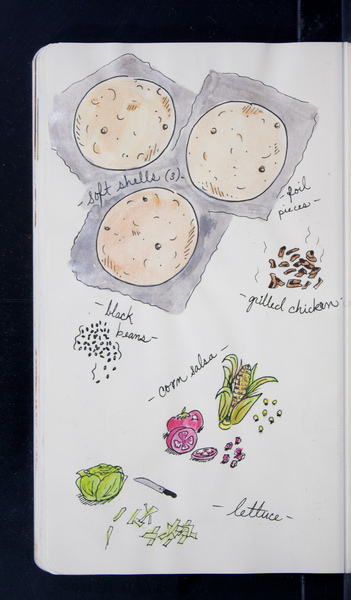 - soft shells (3) -
- foil
pieces -
- grilled chicken -
- black
beans -
- corn salsa -
- lettuce -